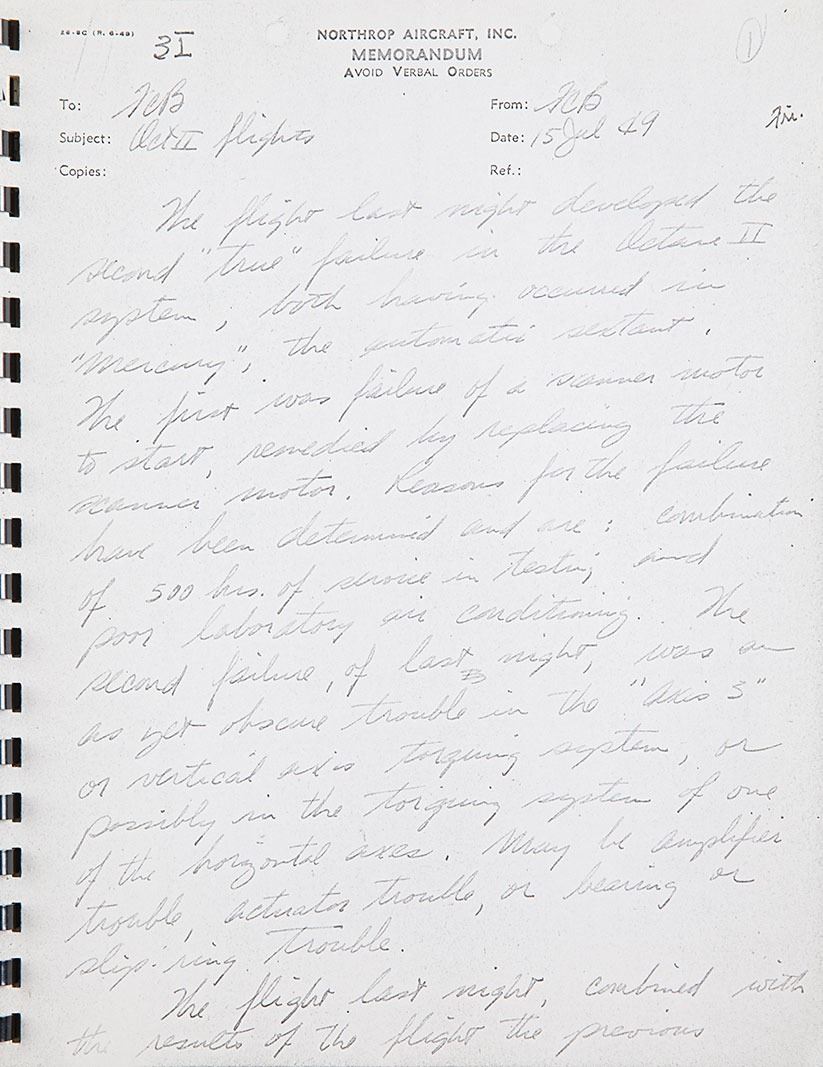 26-8C (R. 6-49)
3I
NORTHROP AIRCRAFT, INC.
MEMORANDUM
AVOID VERBAL ORDERS
1
To: FCB From: FCB
Fri.
Subject: Oct II flights Date: 15 Jul 49
Copies: Ref.:
The flight last night developed the
second "true" failure in the Octave II
system, both having occurred in
"Mercury", the automatic sextant.
The first was failure of a scanner motor
to start, remedied by replacing the
scanner motor. Reasons for the failure
have been determined and are: combination
of 500 hrs. of service in testing and
poor laboratory air conditioning. The
second failure, of last night, was an
as yet obscure trouble in the "axis 3"
or vertical axis torquing system, or
possibly in the torquing system of one
of the horizontal axes. May be amplifier
trouble, actuator trouble, or bearing or
slip-ring trouble.
The flight last night, combined with
the results of the flight the previous